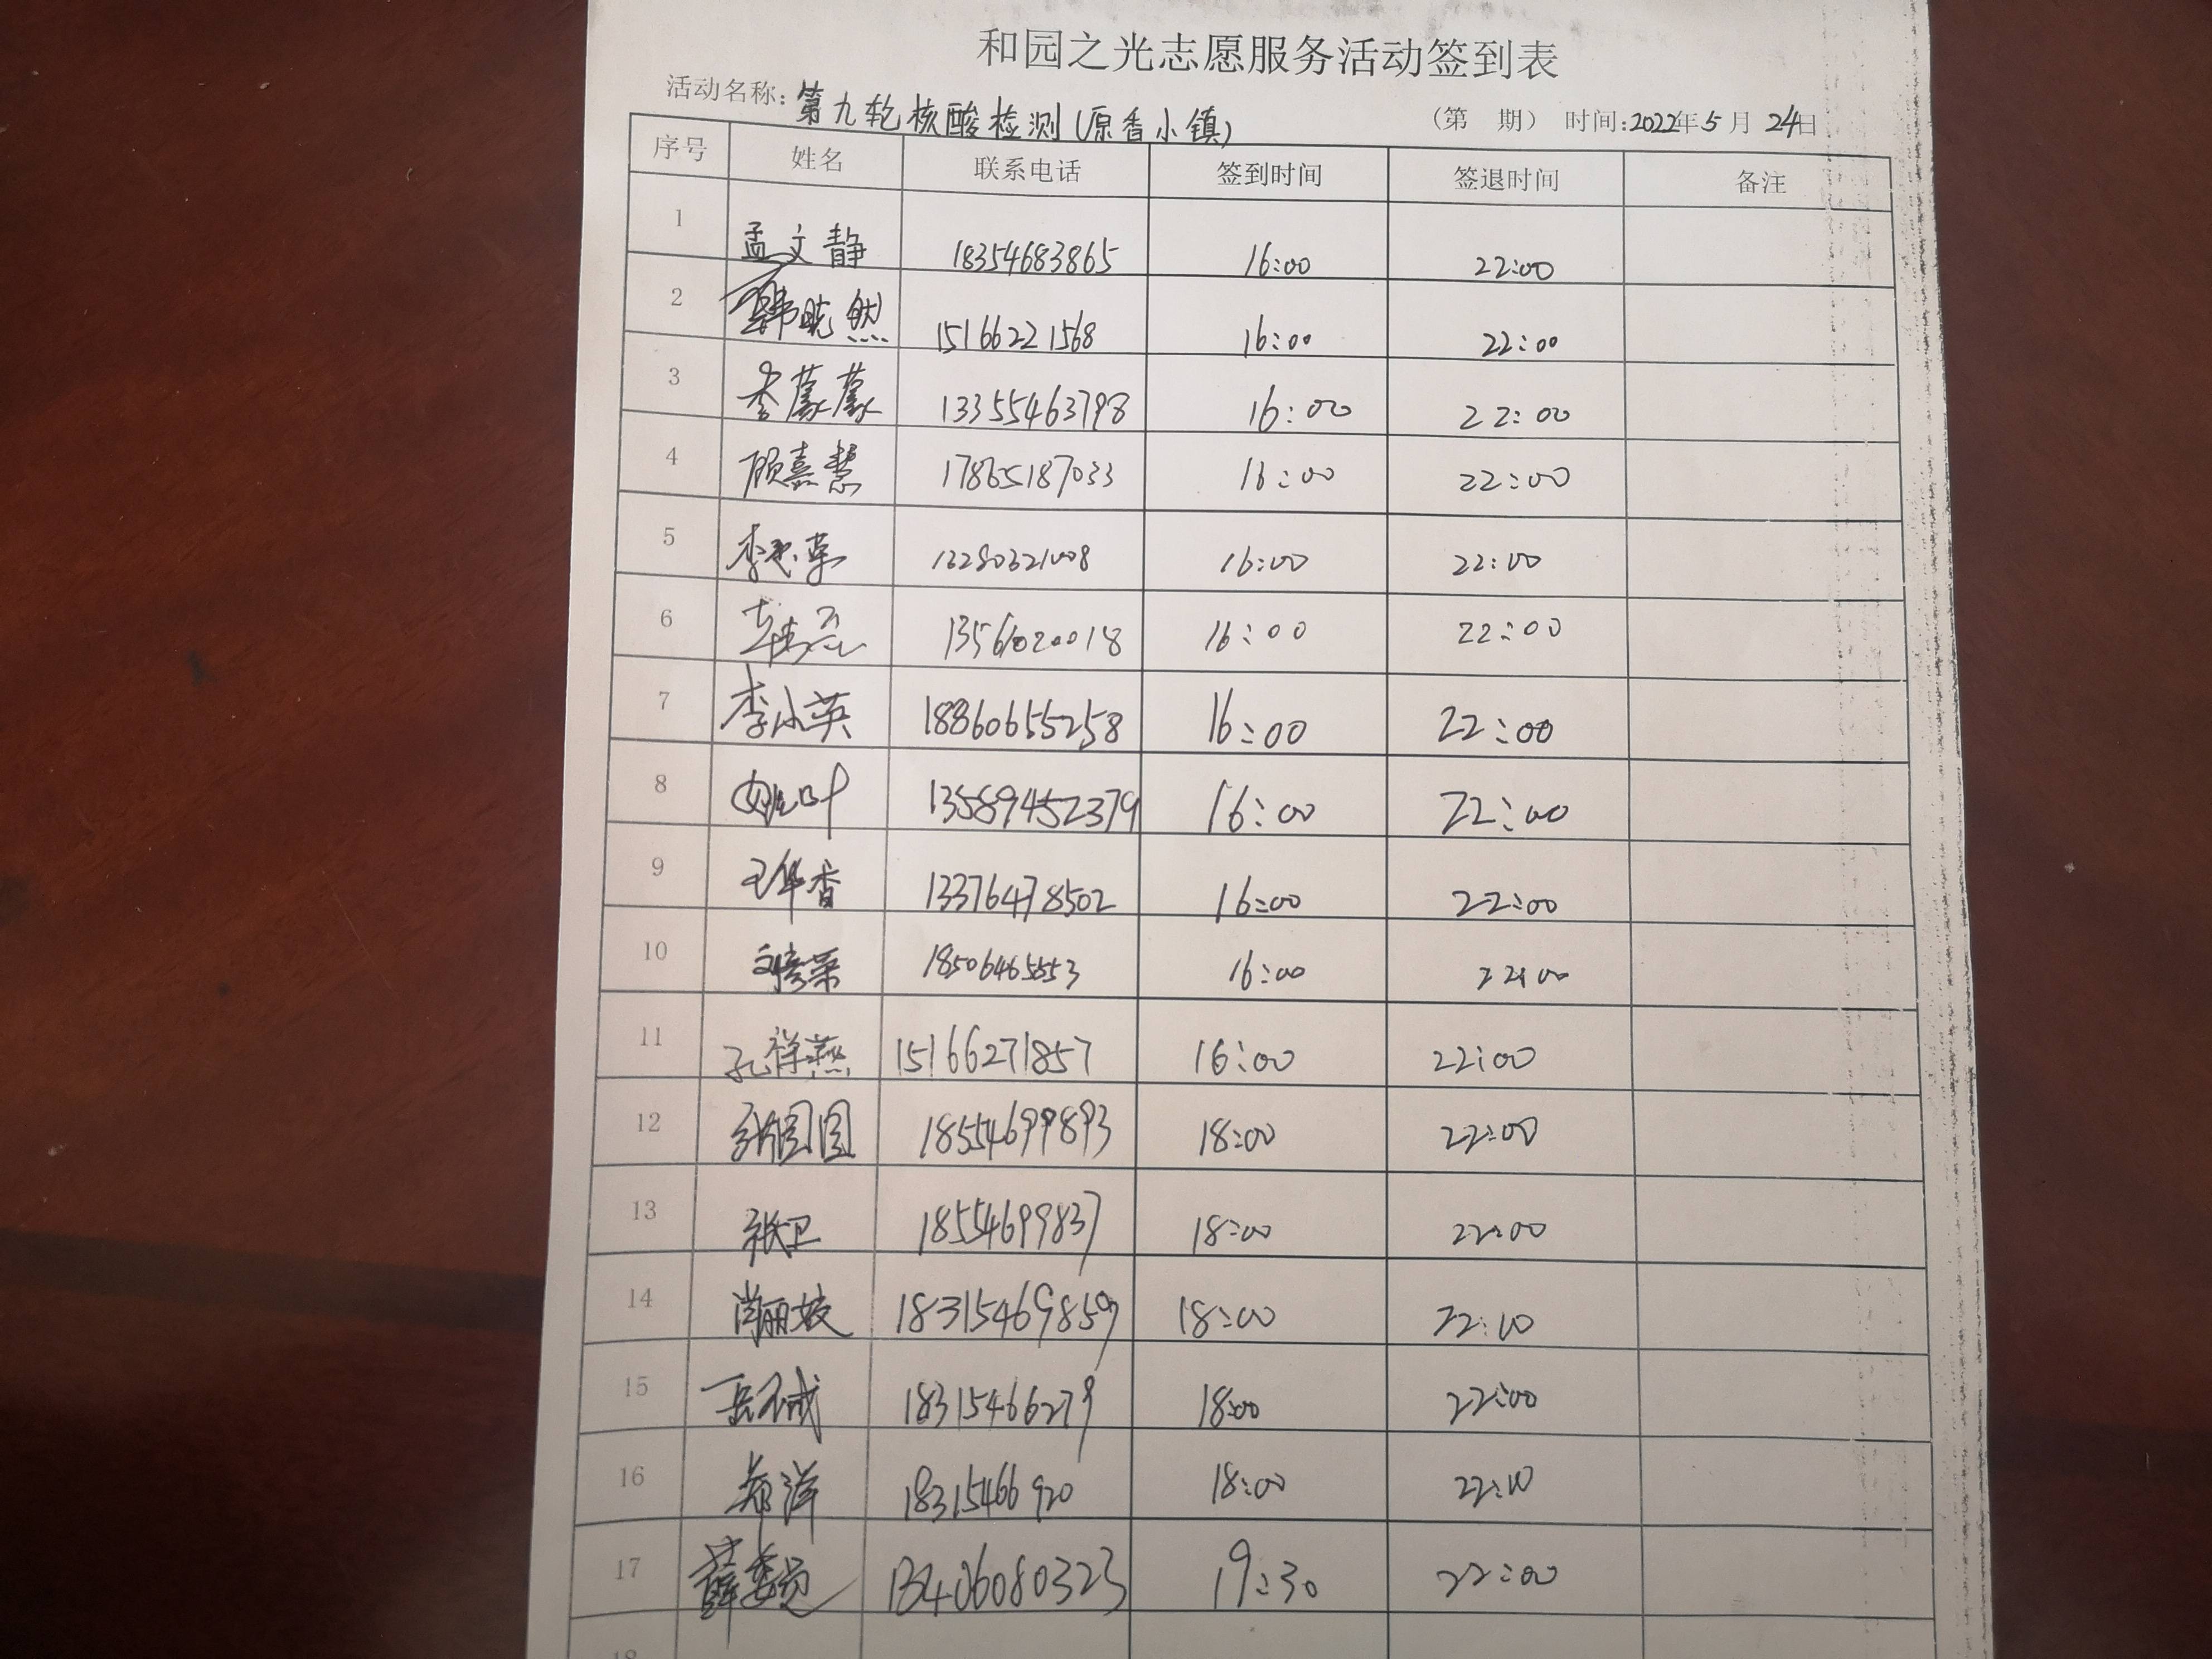 和园之光志愿服务活动签到表
活动名称：第九轮核酸检测(原香小镇) （第 期） 时间:2022年5月24日
序号 姓名 联系电话 签到时间 签退时间 备注
1 孟文静 18354683865 16:00 22:00
2 韩晓然 15166221568 16:00 22:00
3 李蒙蒙 13355463798 16:00 22:00
4 顾熹慧 17865187033 16:00 22:00
5 16:00 22:00
6 16:00 22:00
7 李小英 18860655258 16:00 22:00
8 姚叶 13589452379 16:00 22:00
9 王华香 13376478502 16:00 22:00
10 16:00 22:00
11 孔祥燕 15166271857 16:00 22:00
12 张圆圆 18554699893 18:00 22:00
13 张卫 18554699837 18:00 22:00
14 18315469859 18:00 22:00
15 18315466279 18:00 22:00
16 郑洋 18315466920 18:00 22:00
17 13406080323 19:30 22:00